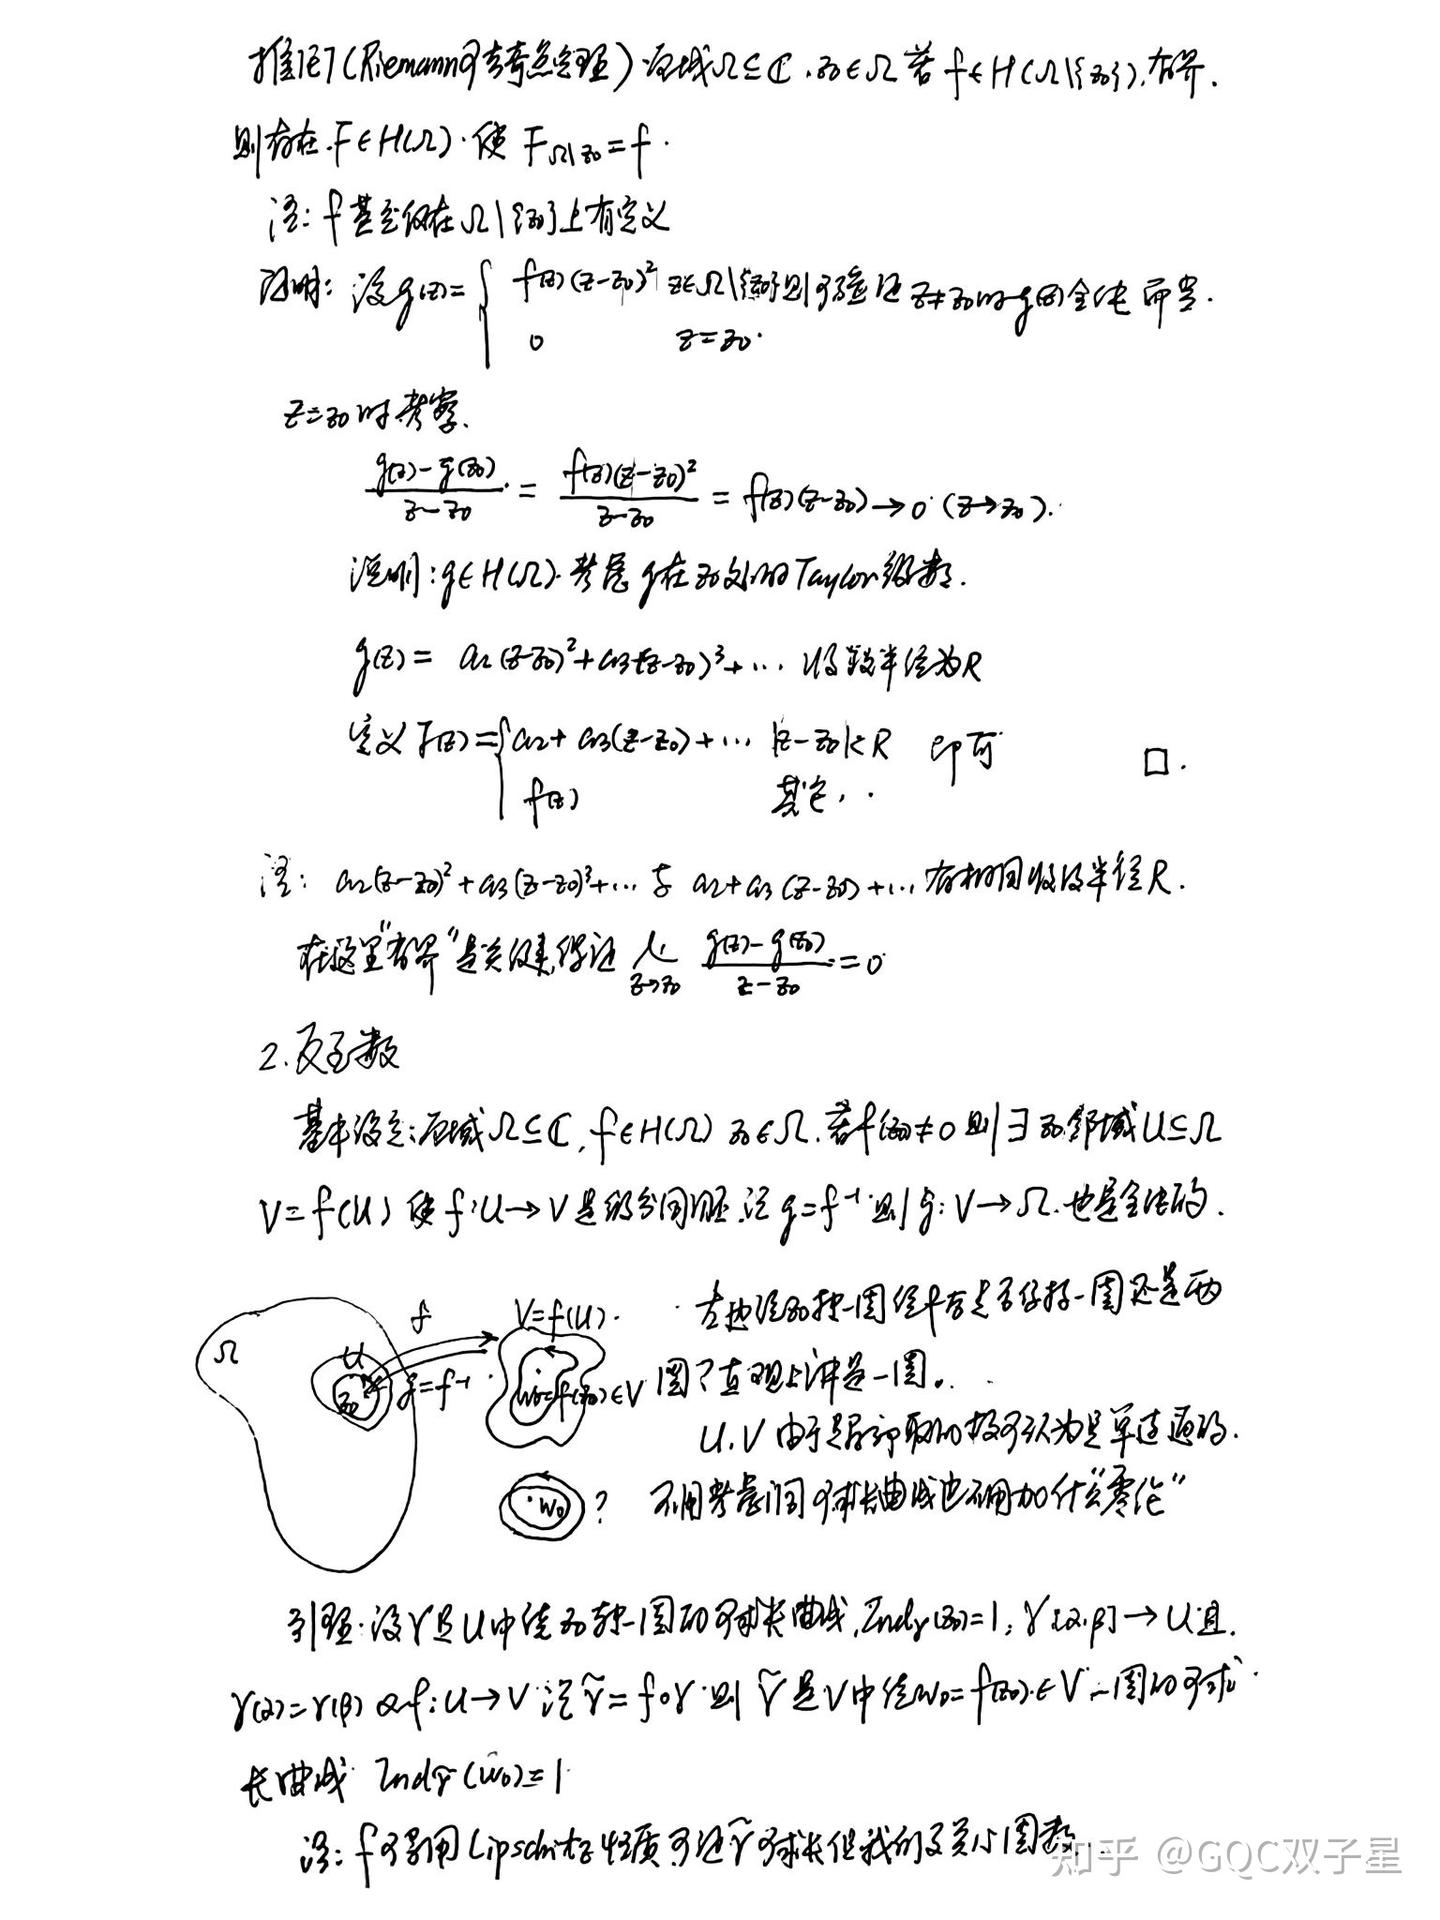 推论7(Riemann可去奇点定理)区域Ω⊆ℂ,z₀∈Ω若f∈H(Ω\{z₀}),有界.
则存在F∈H(Ω).使F_{Ω\z₀}=f.
注:f甚至仅在Ω\{z₀}上有定义
证明:设g(z)={ f(z)(z-z₀)² z∈Ω\{z₀} 则可验证z≠z₀时g(z)全纯即岂.
0 z=z₀.
z=z₀时考察.
(g(z)-g(z₀))/(z-z₀) = f(z)(z-z₀)²/(z-z₀) = f(z)(z-z₀)→0 (z→z₀).
说明:g∈H(Ω).考虑g在z₀处的Taylor级数.
g(z)= a₂(z-z₀)²+a₃(z-z₀)³+… 收敛半径为R
定义F(z)={ a₂+a₃(z-z₀)+… |z-z₀|<R 即可 □.
f(z) 其它.
注: a₂(z-z₀)²+a₃(z-z₀)³+… 与 a₂+a₃(z-z₀)+…有相同收敛半径R.
在这里"有界"是关键,保证 lim_{z→z₀} (g(z)-g(z₀))/(z-z₀)=0
2.反函数
基本设定:区域Ω⊆ℂ,f∈H(Ω) z₀∈Ω.若f'(z₀)≠0则∃z₀邻域U⊆Ω
V=f(U)使f:U→V是微分同胚.记g=f⁻¹则g:V→Ω.也是全纯的.
Ω U z₀ f g=f⁻¹ V=f(U). w₀=f(z₀)∈V
左边绕z₀转一周经f后是否保持一周还是两
圈?直观上讲是一周.
U,V由于是局部取的故可认为是单连通的.
w₀ ? 不用考虑闭可求长曲线也不用加什么"零伦"
引理:设γ是U中绕z₀转一周的可求长曲线,Indγ(z₀)=1,γ:[α,β]→U且
γ(α)=γ(β) 令f:U→V记γ̃=f∘γ则γ̃是V中绕w₀=f(z₀)∈V一周的可求
长曲线 Indγ̃(w₀)=1
注:f可局用Lipschitz性质可证γ̃可求长但我们只关心周数.
知乎 @GQC双子星